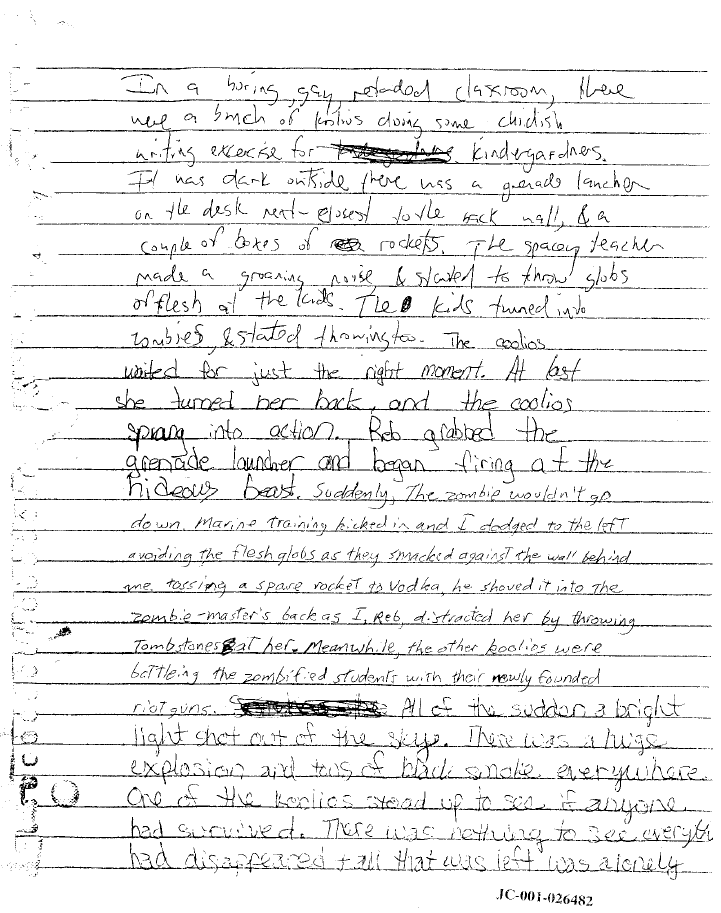 In a boring, gay, retarded classroom, there
were a bunch of koolios doing some childish
writing excercise for kindergardners.
It was dark outside there was a grenade lancher
on the desk next-closest to the back wall, & a
couple of boxes of rockets. The spacey teacher
made a groaning noise, & started to throw globs
of flesh at the kids. The kids turned into
zombies, & started throwing too. The coolios
waited for just the right moment. At last
she turned her back, and the coolios
sprang into action. Reb grabbed the
grenade launcher and began firing at the
hideous beast. Suddenly, The zombie wouldn't go
down. Marine training kicked in and I dodged to the left
avoiding the flesh globs as they smacked against the wall behind
me. tossing a spare rocket to Vodka, he shoved it into The
zombie-master's back as I, Reb, distracted her by throwing
Tombstones at her. Meanwhile, the other koolios were
battleing the zombified students with their newly founded
riot guns. All of the sudden a bright
light shot out of the skye. There was a huge
explosion and tons of black smoke everywhere.
One of the koolios stood up to see if anyone
had survived. There was nothing to see everyth
had disappeared + all that was left was a lonely
JC-001-026482